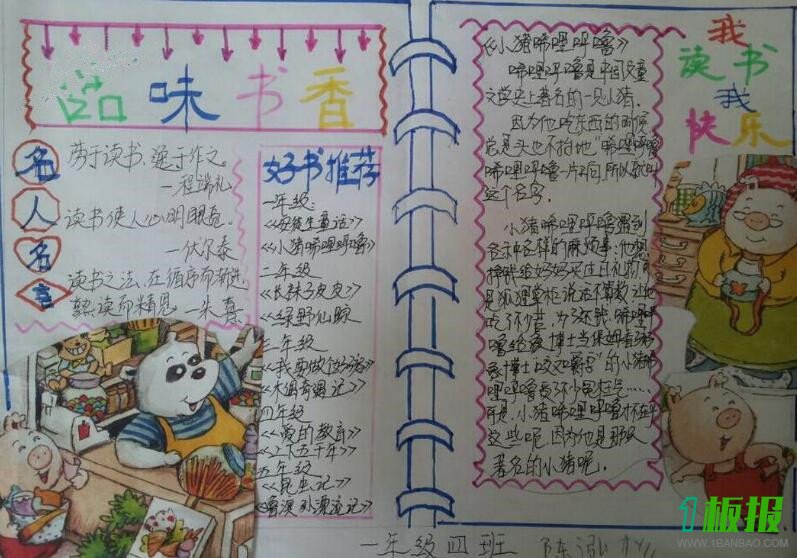 品味书香
名人名言
劳于读书，逸于作文。
—程端礼
读书使人心明眼亮。
—伏尔泰
读书之法，在循序而渐进，
熟读而精思 —朱熹
好书推荐
一年级：
《安徒生童话》
《小猪唏哩呼噜》
二年级
《长袜子皮皮》
《绿野仙踪
三年级
《我要做个好孩子》
《木偶奇遇记》
四年级
《爱的教育》
《上下五千年》
五年级
《昆虫记》
《鲁滨孙漂流记》
我读书
我快乐
《小猪唏哩呼噜》
唏哩呼噜是中国儿童
文学史上著名的一只小猪。
因为他吃东西的时候
总是头也不抬地"唏哩呼噜
唏哩呼噜一片响，所以就叫
这个名字。
小猪唏哩呼噜遇到
各种各样的麻烦事：他想
挣钱给妈妈买生日礼物，可
是狐狸掌柜说话不算数，让他
吃了不少苦，
博士当保姆
的小猪唏
哩呼噜受了不少
可是，小猪唏哩呼噜才不在乎
这些呢，因为他是那只
著名的小猪呢。
一年级四班 陈泓
1板报
WWW.1BANBAO.COM